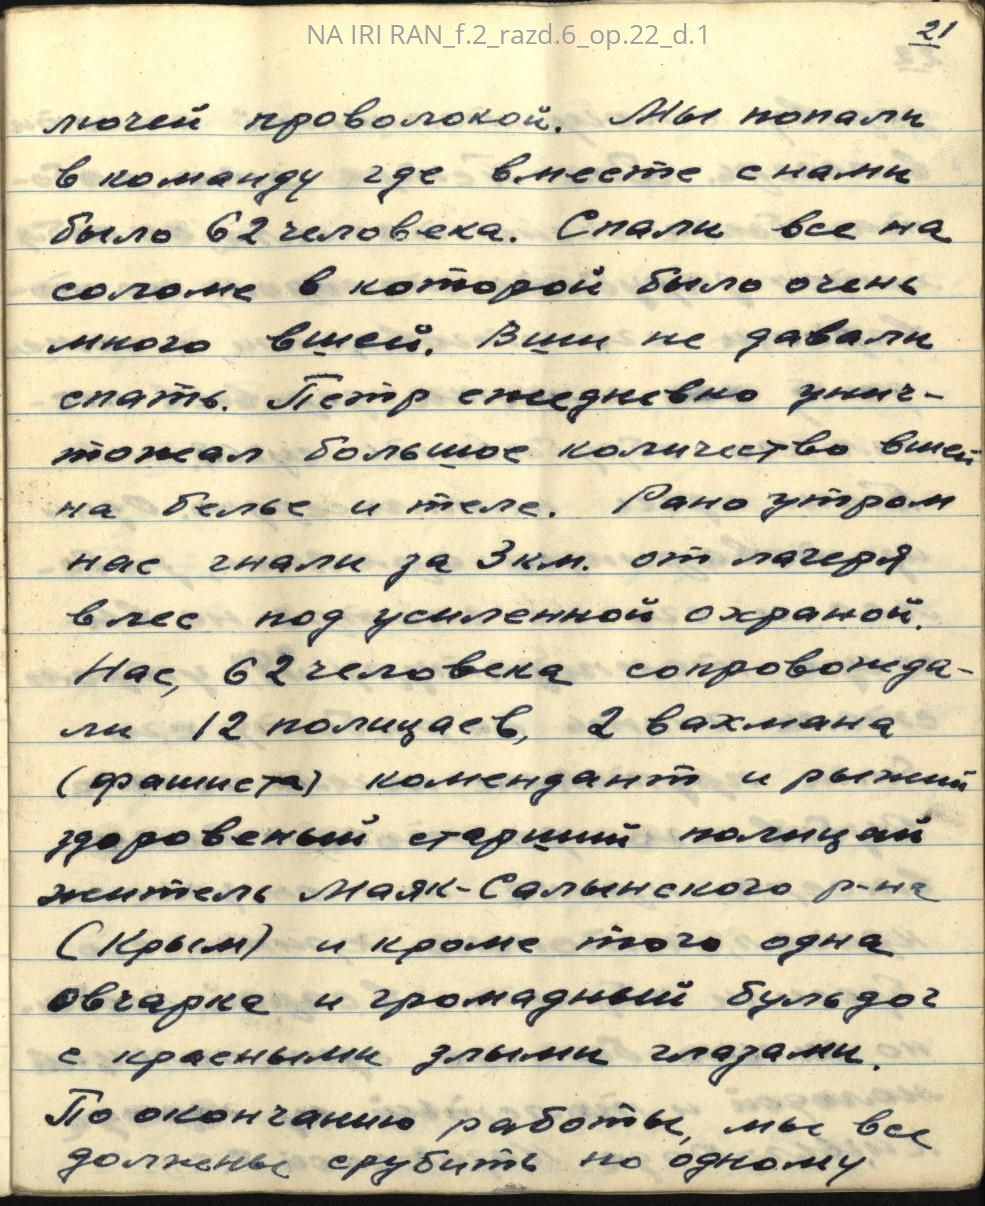 NA IRI RAN_f.2_razd.6_op.22_d.1
21
лючей проволокой. Мы попали
в команду где вместе с нами
было 62 человека. Спали все на
соломе в которой было очень
много вшей. Вши не давали
спать. Петр ежедневно унич-
тожал большое количество вшей
на белье и теле. Рано утром
нас гнали за 3 км. от лагеря
в лес под усиленной охраной.
Нас, 62 человека сопровожда-
ли 12 полицаев, 2 вахмана
(фашиста) комендант и рыжий
здоровеный старший полицай
житель Маяк-Салынского р-на
(Крым) и кроме того одна
овчарка и громадный бульдог
с красными злыми глазами.
По окончанию работы, мы все
должены срубить по одному